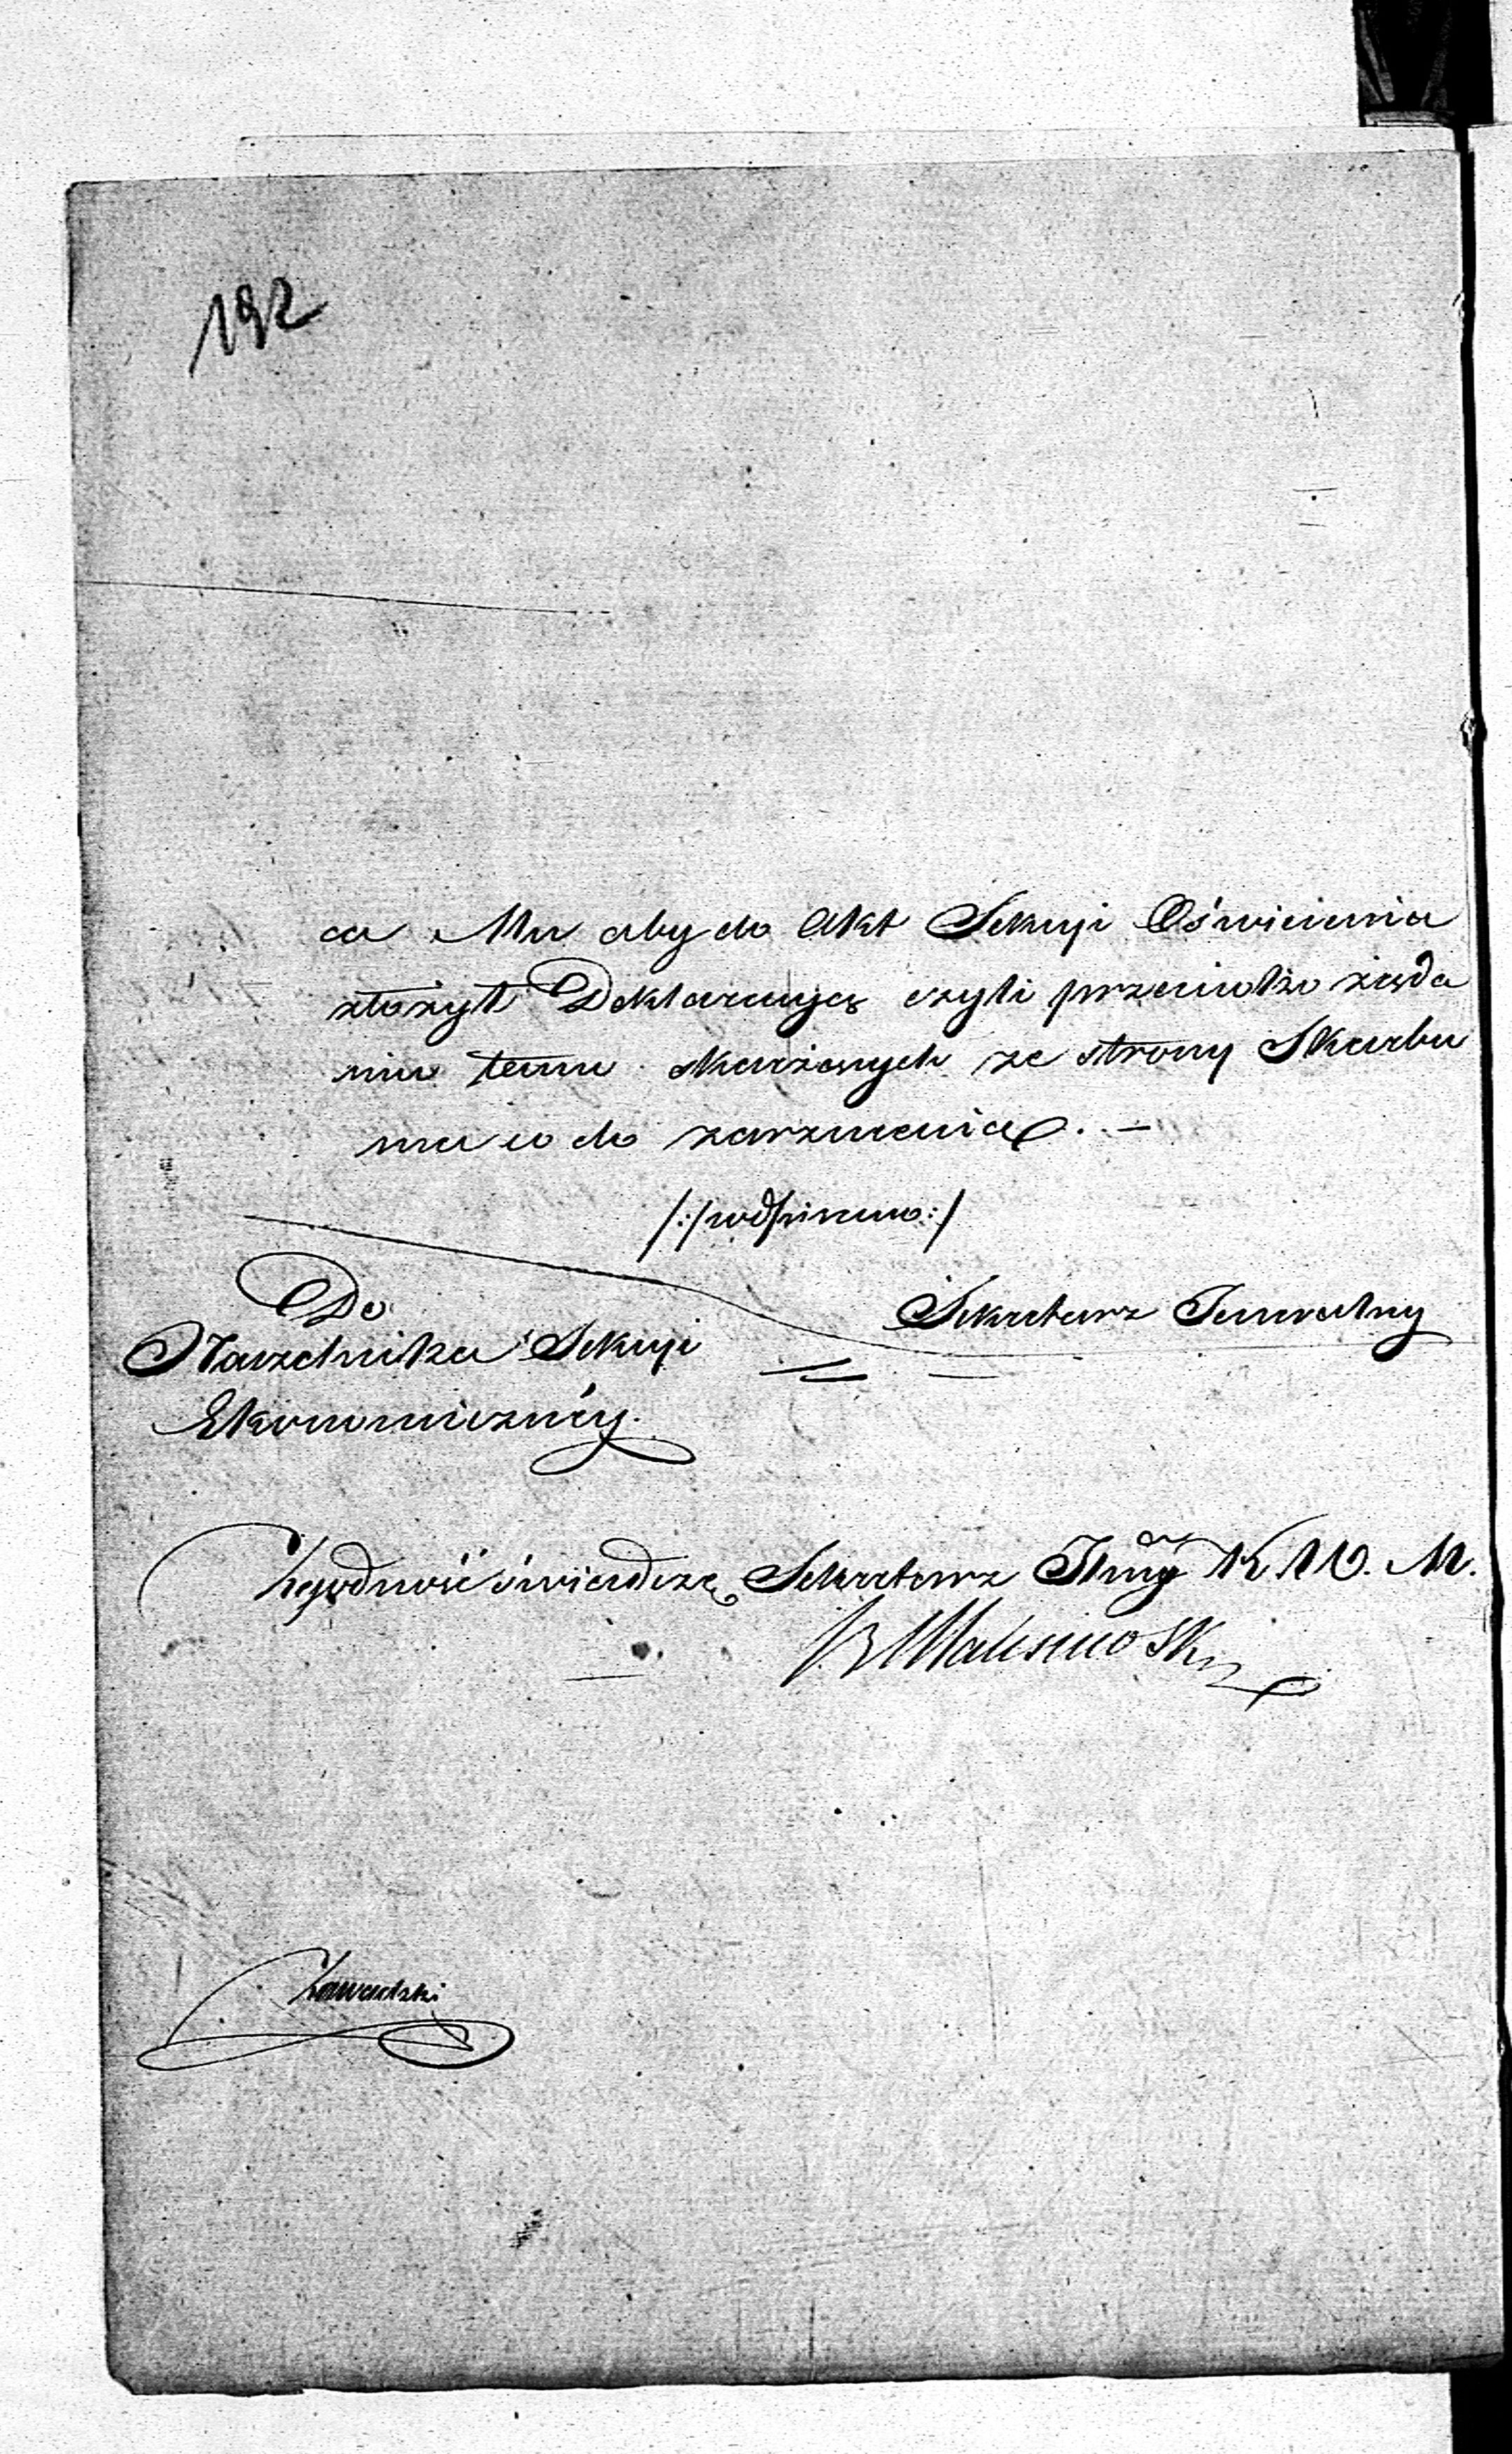 192
ca Mu aby do Akt Sekcyi Oświecenia
złożył Deklaracyą czyli przeciwko żąda
niu temu skarżonych ze strony Skarbu
ma co do zarzucenia. —
/:podpisano:/
Do
Sekretarz Jeneralny
Naczelnika Sekcyi
Ekonomicznéy.
Zgodność świadczę Sekretarz Jlny K. W. M.
Zawadzki